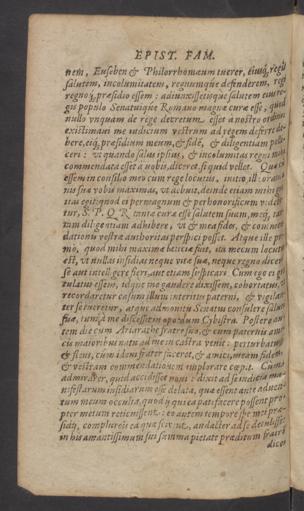 EPIST. FAM.
nem, Euseben & Philorrhomæum tuerer, eiusq́; regis
salutem, incolumitatem, regnumque defenderem, regi
regnoq́; præsidio essem: adiunxissetque salutem eius re-
gis populo Senatuique Romano magnæ curæ esse, quod
nullo vnquam de rege decretum esset à nostro ordine:
existimaui me iudicium vestrum ad regem deferre de-
bere, eiq́; præsidium meum, & fidē, & diligentiam polli-
ceri: vt quando salus ipsius, & incolumitas regni mihi
commendata esset à vobis, diceret si quid vellet. Quæ cū
essem in consilio meo cum rege locutus, initio ille orationis
nis suæ vobis maximas, vt debuit, deinde etiam mihi gra-
tias egit: quod ei permagnum & perhonorificum vide-
tur, S. P. Q. R. tantæ curæ esse salutem suam, meq́; tan-
tam diligentiam adhibere, vt & mea fides, & commen-
dationis vestræ authoritas perspici posset. Atque ille pri-
mò, quod mihi maximæ lætitiæ fuit, ita mecum locutus
est, vt nullas insidias neque vitæ suæ, neque regno diceret
se aut intelligere fieri, aut etiam suspicari. Cum ego ei gra-
tulatus essem, idque me gaudere dixissem, cohortatus, vt
recordaretur casum illum interitus paterni, & vigilan-
ter se tueretur, atque admonitu Senatus consulere saluti
suæ, tum à me discessit in oppidum Cybistra. Postero au-
tem die cum Ariarathe fratre suo, & cum paternis ami-
cis maioribus natu ad me in castra venit: perturbatus
& flens, cum idem & frater faceret, & amici, meam fidem,
& vestram commendationem implorare cœpit. Cum
admirarer, quid accidisset noui: dixit ad se indicia ma-
nifestarum insidiarum esse delata, quæ essent ante aduen-
tum meum occulta, quod ij qui ea patefacere possent pro-
pter metum reticuissent: eo autem tempore spe mei præ-
sidij, complures ea quæ scirent, audacter ad se detulisse:
in his amantissimum sui summa pietate præditum fratrē
dicere